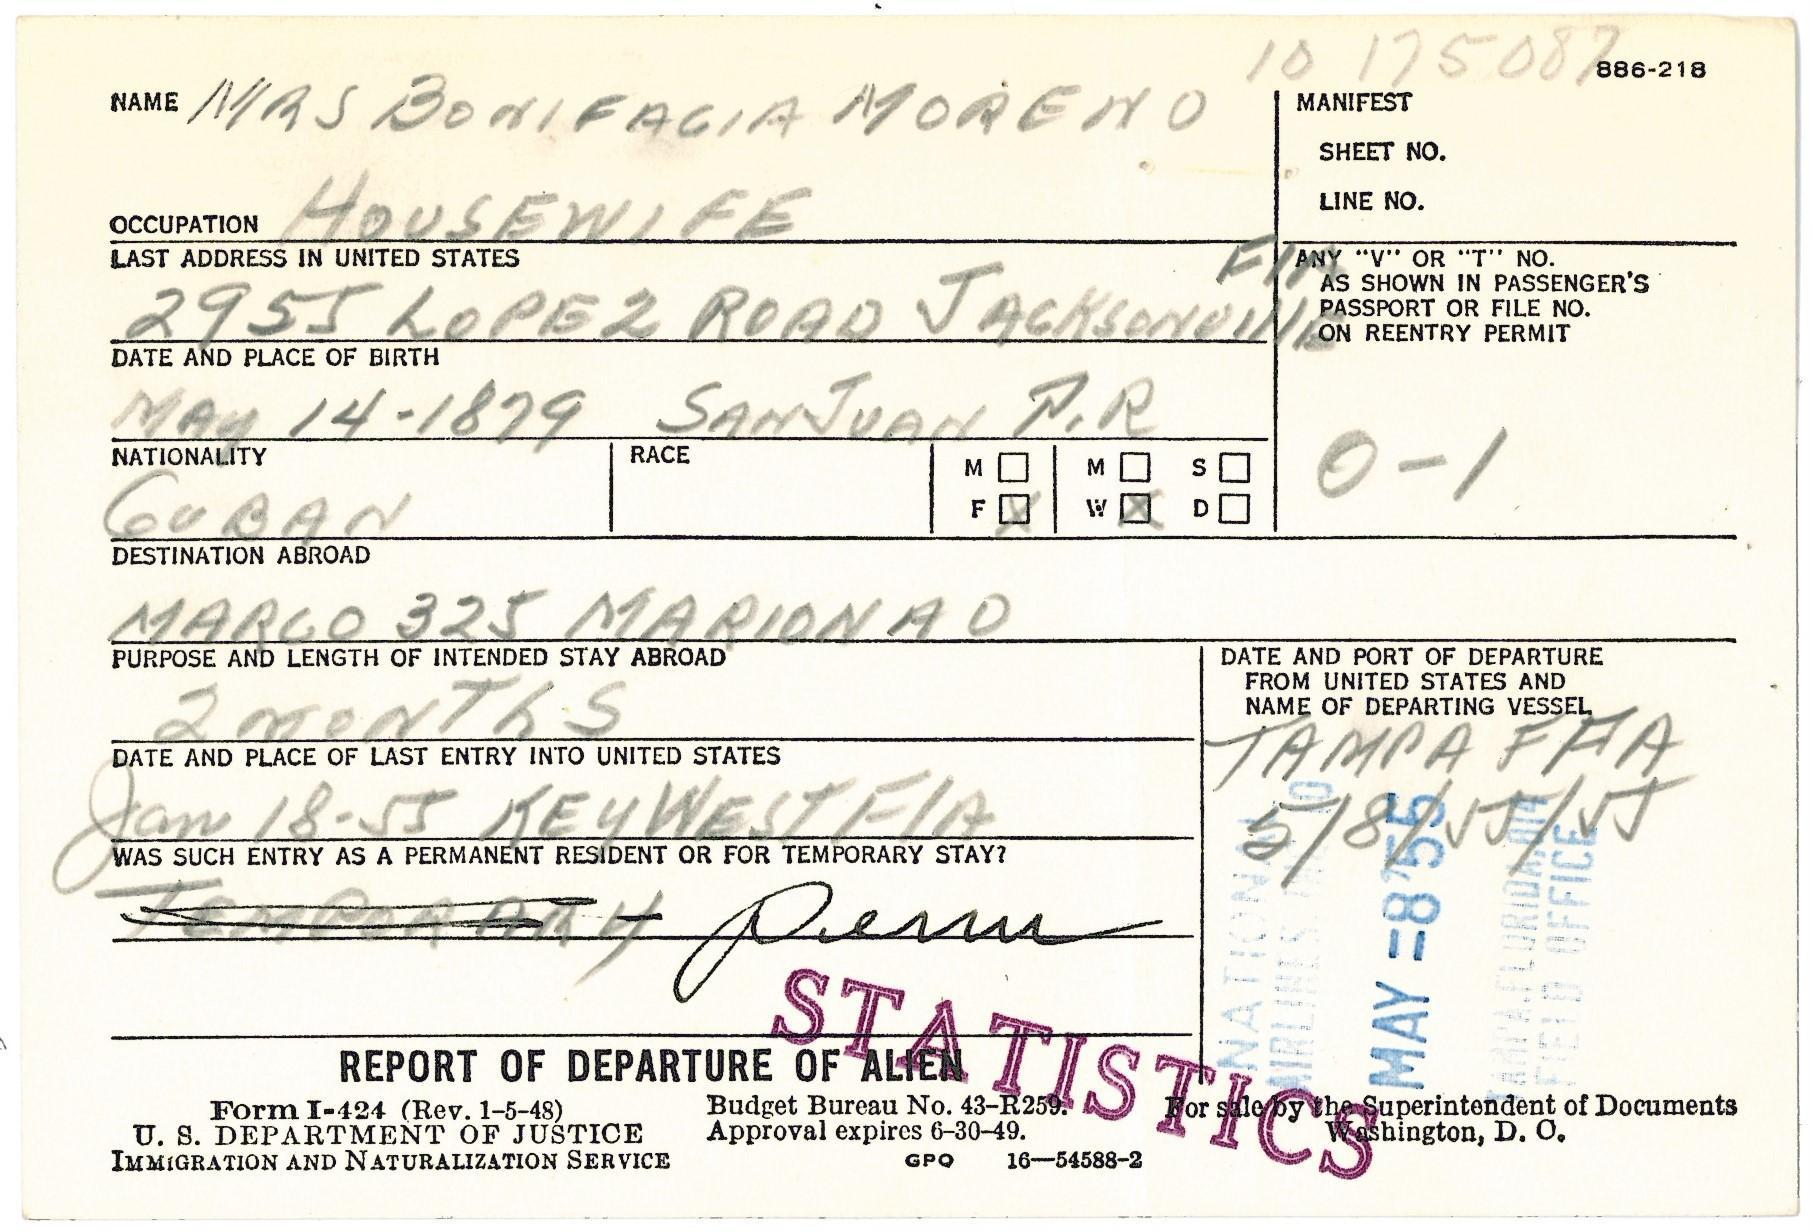 10 175087
886-218
NAME MRS BONIFACIA MORENO
MANIFEST
SHEET NO.
LINE NO.
OCCUPATION HOUSEWIFE
LAST ADDRESS IN UNITED STATES
2955 LOPEZ ROAD JACKSONVIllE FlA
ANY "V" OR "T" NO.
AS SHOWN IN PASSENGER'S
PASSPORT OR FILE NO.
ON REENTRY PERMIT
0-1
DATE AND PLACE OF BIRTH
MAY 14-1879 SAN JUAN P.R
NATIONALITY
CUBAN
RACE
M M S
F X W X D
DESTINATION ABROAD
MARCO 325 MARIONAO
PURPOSE AND LENGTH OF INTENDED STAY ABROAD
2 MONThS
DATE AND PORT OF DEPARTURE
FROM UNITED STATES AND
NAME OF DEPARTING VESSEL
TAMPA FlA
5/8/55/55
DATE AND PLACE OF LAST ENTRY INTO UNITED STATES
Jan 18-55 KEY WEST FlA
WAS SUCH ENTRY AS A PERMANENT RESIDENT OR FOR TEMPORARY STAY?
TEMPORARY Perm
NATIONAL
AIRLINES
MAY -8 '55
TAMPA, FLORIDA
FIELD OFFICE
STATISTICS
REPORT OF DEPARTURE OF ALIEN
Form I-424 (Rev. 1-5-48)
U. S. DEPARTMENT OF JUSTICE
IMMIGRATION AND NATURALIZATION SERVICE
Budget Bureau No. 43-R259.
Approval expires 6-30-49.
GPO 16—54588-2
For sale by the Superintendent of Documents
Washington, D. C.